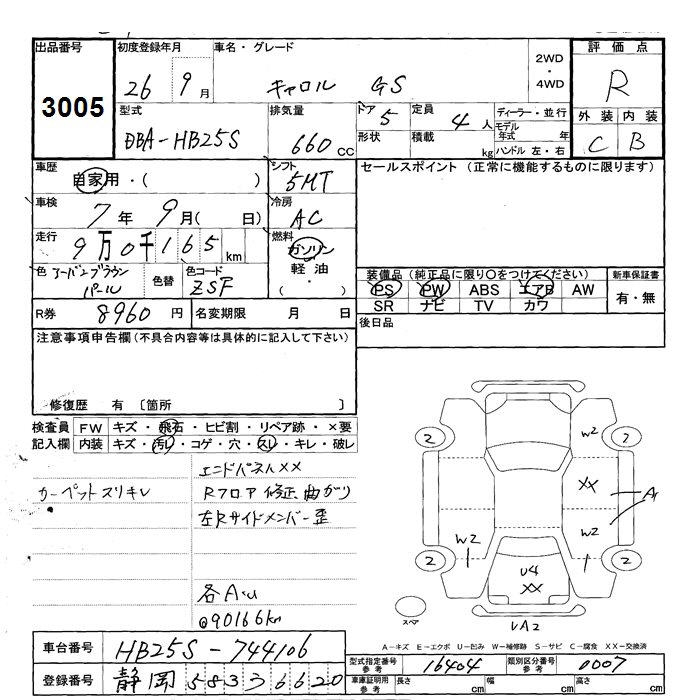 出品番号 初度登録年月 車名・グレード 2WD・4WD 評価点
3005 26 9月 キャロル GS R
型式 排気量 ドア 5 定員 4人 ディーラー・並行 外装 内装
DBA-HB25S 660cc 形状 積載 kg モデル年式 年 C B
ハンドル 左・右
車歴 自家用・( ) シフト 5MT セールスポイント (正常に機能するものに限ります)
車検 7年 9月( 日) 冷房 AC
走行 9万0千165km 燃料 ガソリン 軽油・( )
色 アーバンブラウンパール 色替 色コード ZSF
装備品(純正品に限り〇をつけてください) 新車保証書
PS PW ABS エアB AW 有・無
SR ナビ TV カワ
R券 8960円 名変期限 月 日 後日品
注意事項申告欄(不具合内容等は具体的に記入して下さい)
修復歴 有 〔箇所 〕
検査員 FW キズ・飛石・ヒビ割・リペア跡・×要
記入欄 内装 キズ・汚レ・コゲ・穴・スレ・キレ・破レ
エンドパネルXX
カーペットスリキレ Rフロア修正曲がり
左Rサイドメンバー歪
各A・U
@90166km
2 W2 2
XX A1
W2 W2
2 U4 XX 2
スペア VA2
A-キズ E-エクボ U-凹み W-補修跡 S-サビ C-腐食 XX-交換済
車台番号 HB25S-744106
型式指定番号 参考 16404 類別区分番号 参考 0007
登録番号 静岡 583 ろ 6620
車庫証明用 参考 長さ cm 幅 cm 高さ cm